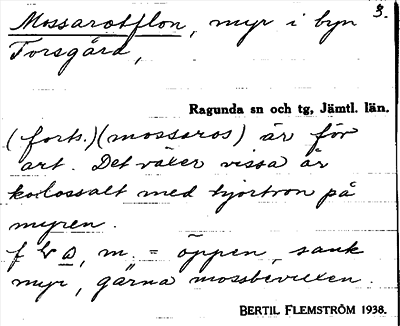 3.
Mossarosflon, myr i byn
Torsgård,
Ragunda sn och tg, Jämtl. län.
(forts.) (mossaros) är för
art. Det växer vissa år
kolossalt med hjortron på
myren.
m. = öppen, sank
myr, gärna mossbevuxen.
BERTIL FLEMSTRÖM 1938.